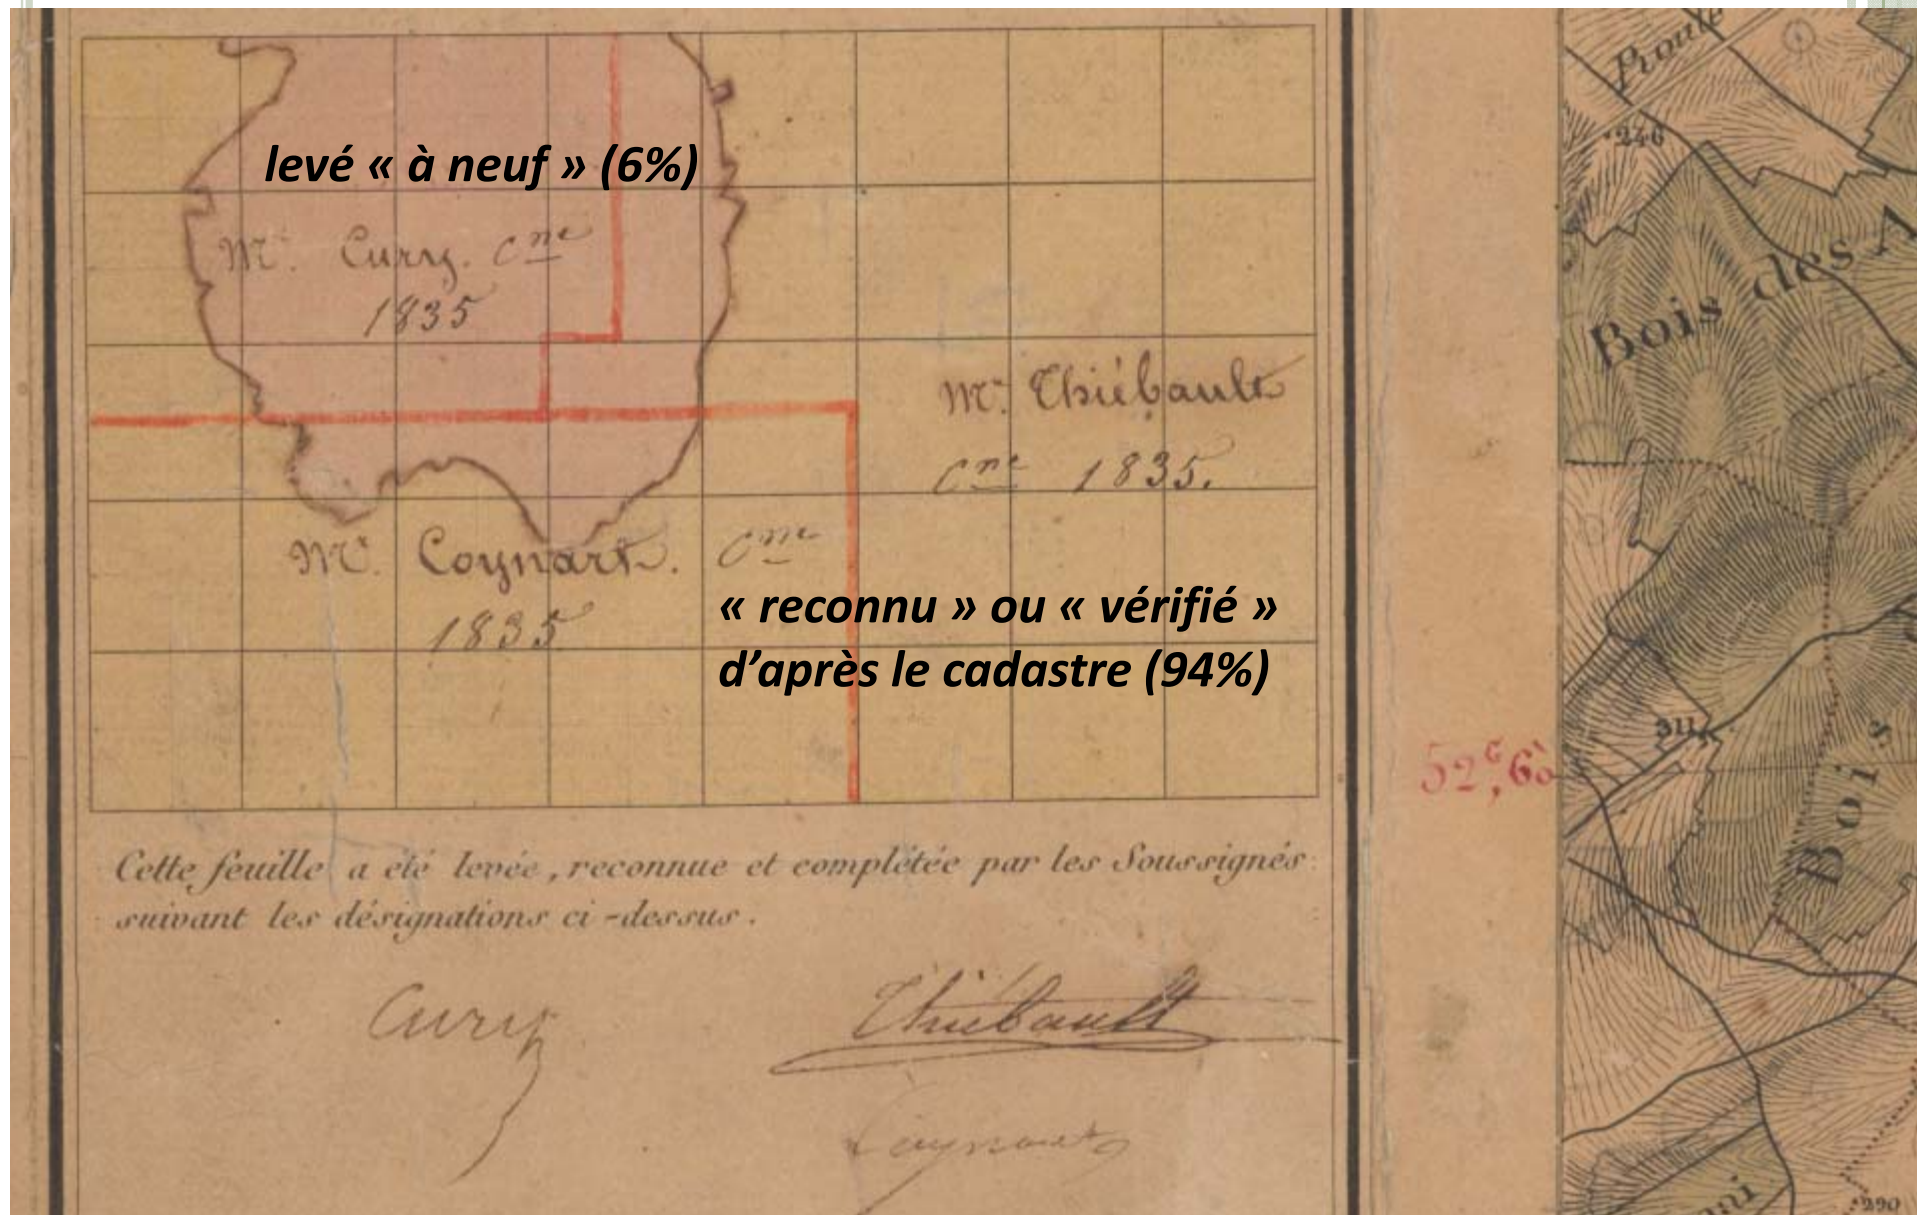 levé « à neuf » (6%)
Mr. Curry. Cne
1835
Mr. Thiébault
Cne 1835.
Mr. Coynart. Cne
1835
« reconnu » ou « vérifié »
d’après le cadastre (94%)
Cette feuille a été levée, reconnue et complétée par les Soussignés
suivant les désignations ci-dessus.
Curry
Thiébault
Coynart
52G,65
Route
246
Bois des A
311
Bois
290